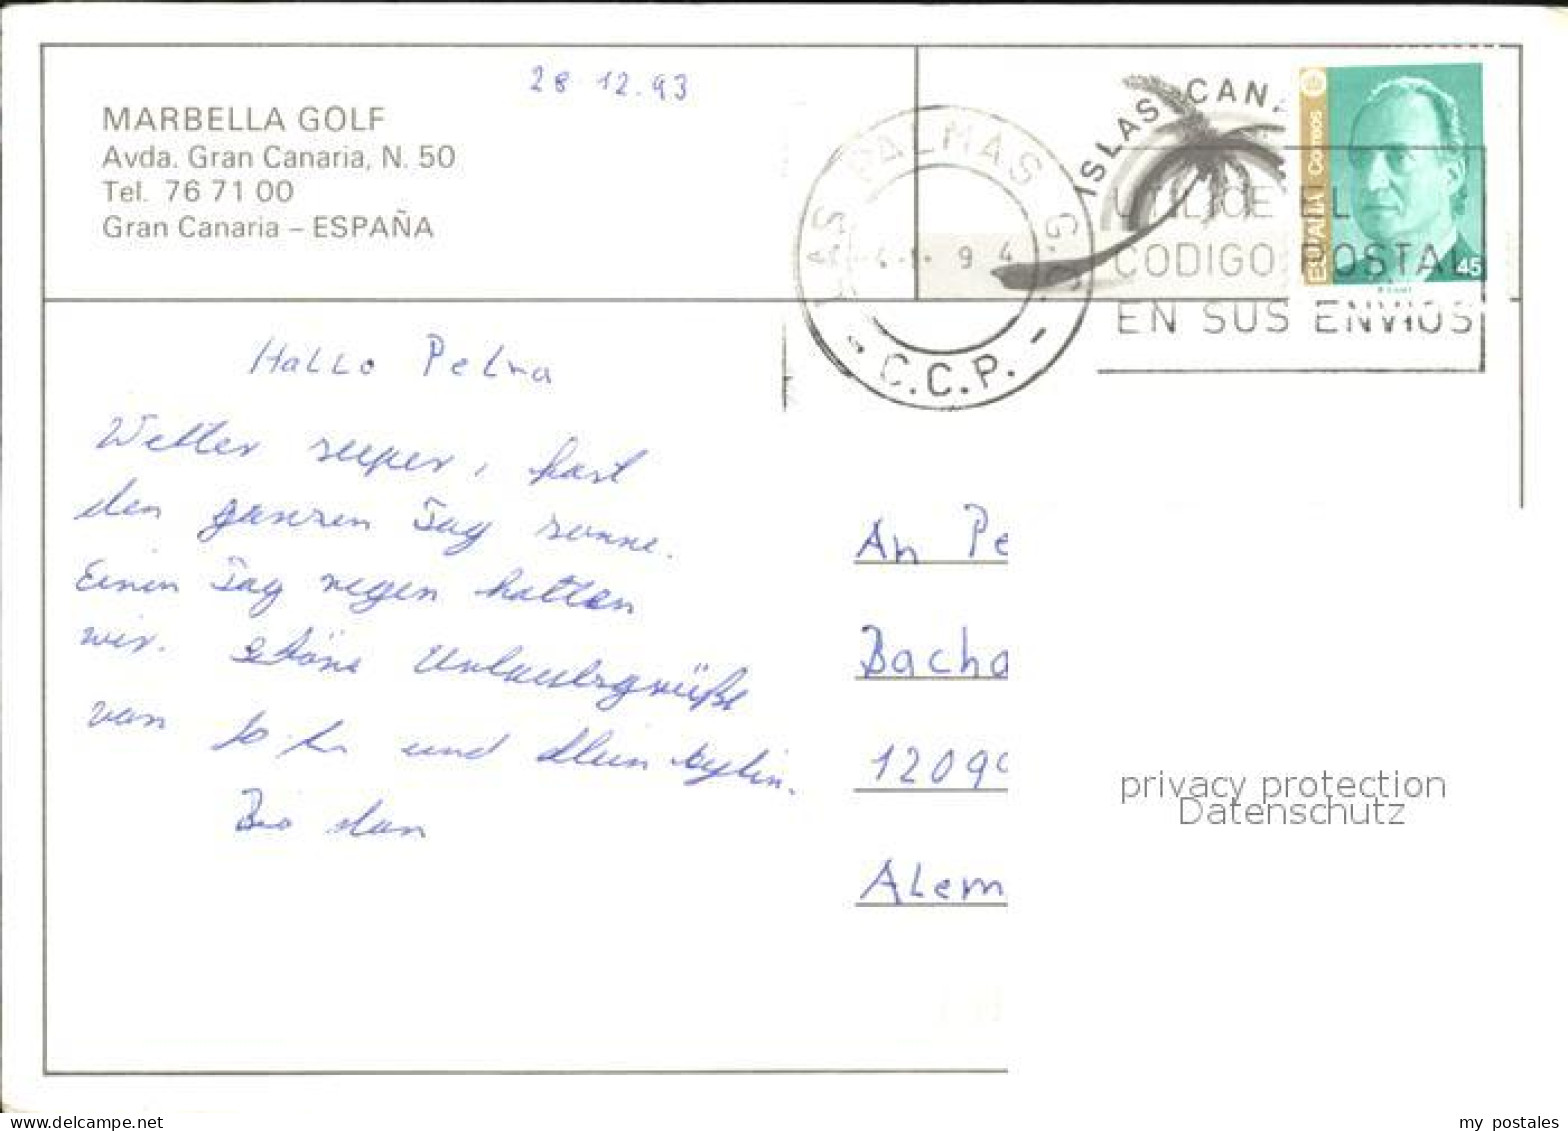 28.12.93
MARBELLA GOLF
Avda. Gran Canaria, N. 50
Tel. 76 71 00
Gran Canaria – ESPAÑA
ISLAS CANA
LAS PALMAS G.C.
4.1.94
- C.C.P. -
UTILICE EL
CODIGO POSTAL
EN SUS ENVIOS
ESPAÑA Correos
45
Hallo Petra
Wetter super, fast
den ganzen Tag sonne.
Einen Tag regen hatten
wir. schöne Urlaubsgrüße
von und
Bis dan
An Pe
Bacha
1209
Alem
privacy protection
Datenschutz
my postales